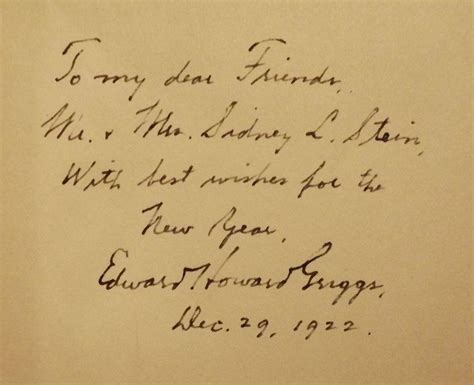 To my dear Friends,
Mr. & Mrs. Sidney L. Stein,
With best wishes for the
New Year,
Edward Howard Griggs,
Dec. 29, 1922.